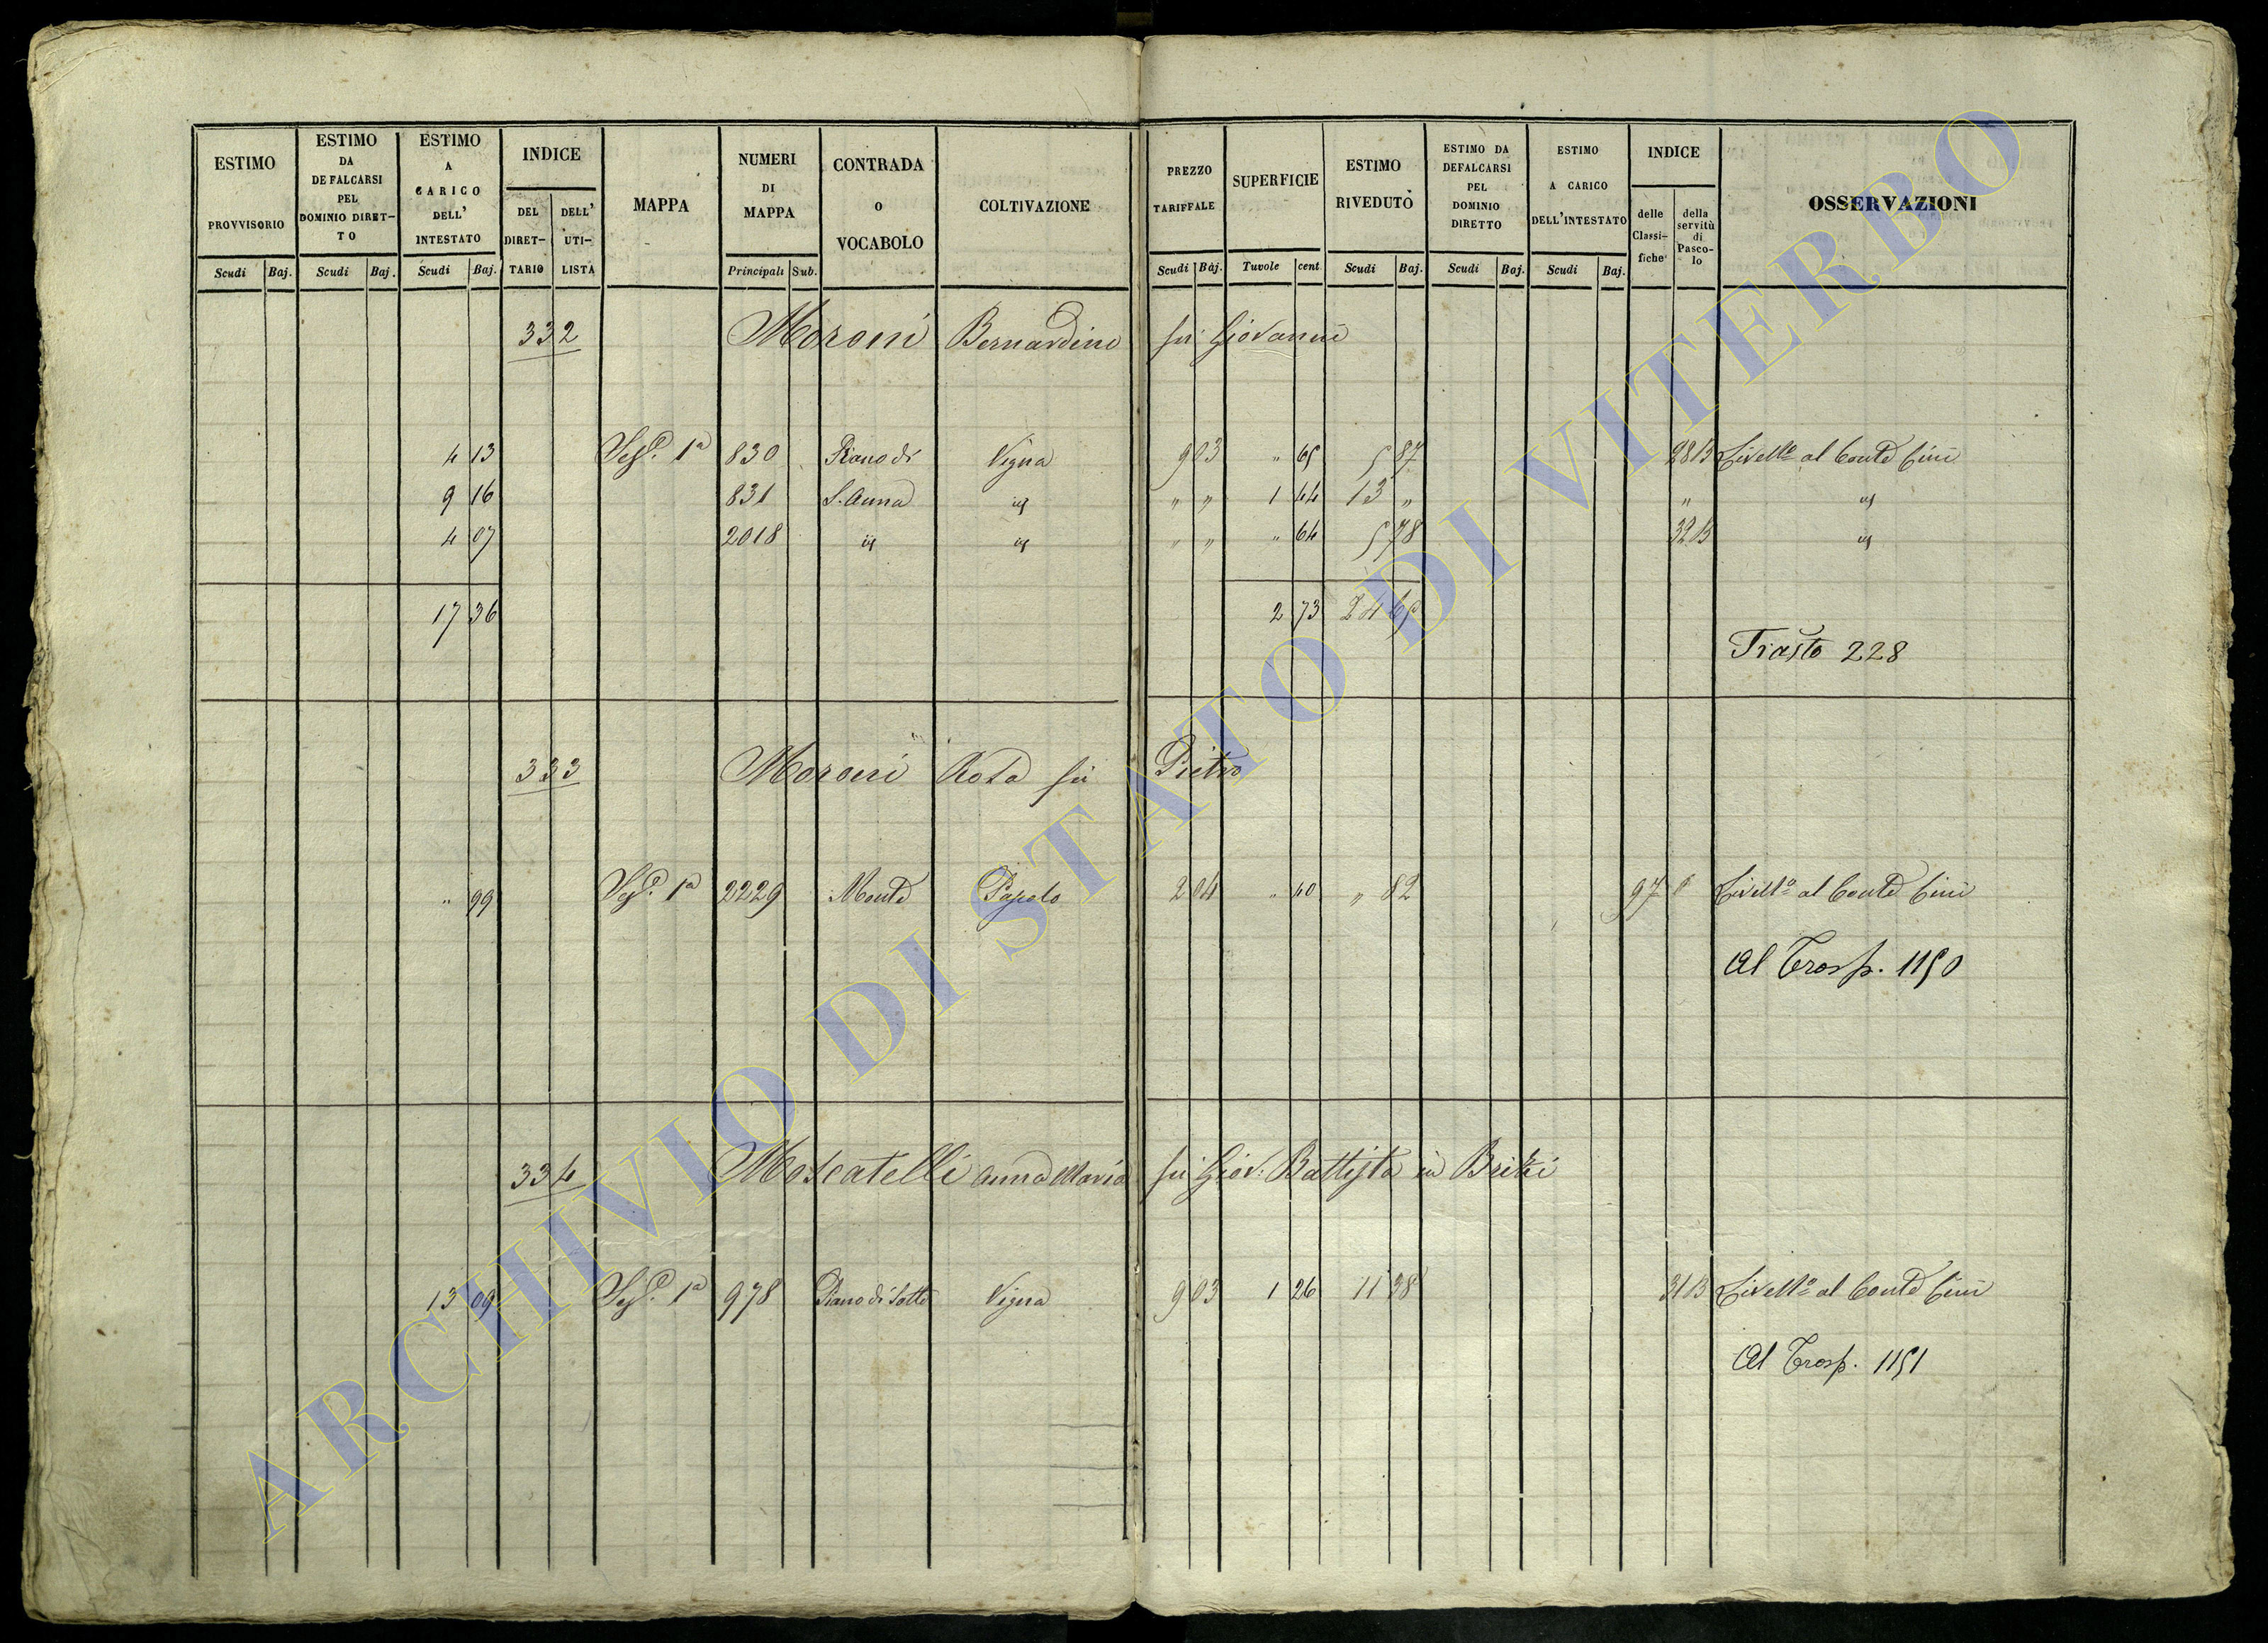 ESTIMO PROVVISORIO Scudi Baj.
ESTIMO DA DEFALCARSI PEL DOMINIO DIRET-TO Scudi Baj.
ESTIMO A CARICO DELL' INTESTATO Scudi Baj.
INDICE DEL DIRET-TARIO DELL' UTI-LISTA
MAPPA
NUMERI DI MAPPA Principali Sub.
CONTRADA O VOCABOLO
COLTIVAZIONE
PREZZO TARIFFALE Scudi Baj.
SUPERFICIE Tavole cent
ESTIMO RIVEDUTO Scudi Baj.
ESTIMO DA DEFALCARSI PEL DOMINIO DIRETTO Scudi Baj.
ESTIMO A CARICO DELL'INTESTATO Scudi Baj.
INDICE delle Classi-fiche della servitù di Pasco-lo
OSSERVAZIONI
332 Moroni Bernardino fu Giovanni
4 13 Sez. 1a 830 Piano di Vigna 9 03 " 65 5 87 28 B Livello al Conte Cini
9 16 831 S. Anna id " " 1 44 13 " " id
4 07 2018 id id " " " 64 5 78 32 B id
17 36 2 73 24 65
Trasto 228
333 Moroni Rosa fu Pietro
" 99 Sez. 1a 2229 Monte 2 04 " 40 " 82 97 Livello al Conte Cini
Al Trasp. 1150
334 Moscatelli Anna Maria fu Giov: Battista in Brizi
13 09 Sez. 1a 978 Piano di Sotto Vigna 9 03 1 26 11 38 31 B Livello al Conte Cini
Al Trasp. 1151
ARCHIVIO DI STATO DI VITERBO